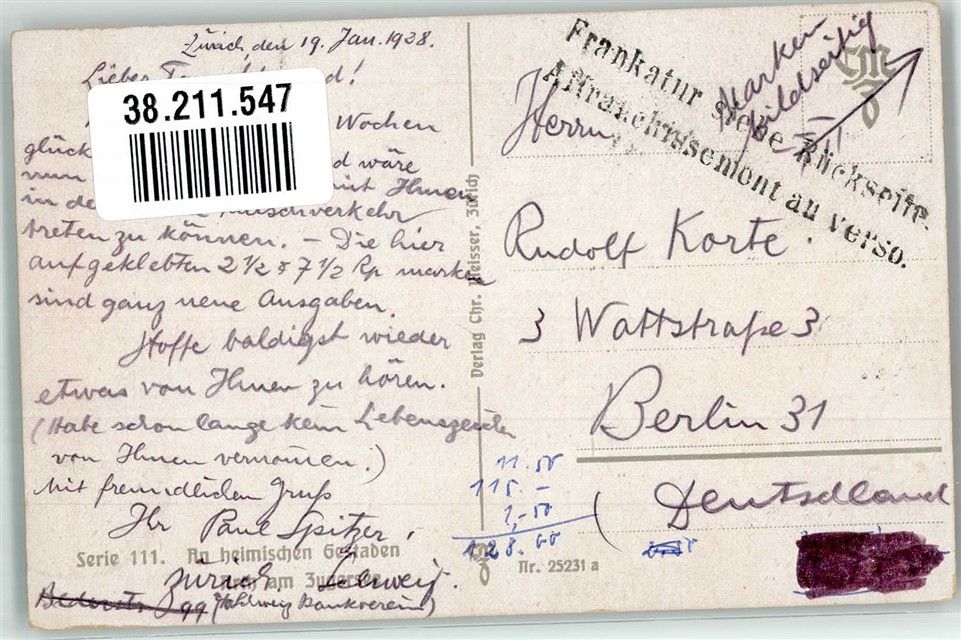 Zürich, den 19. Jan. 1928.
Lieber
38.211.547
Wochen
glück
nun wäre
in de mit Ihnen
treten zu können. – Die hier
aufgeklebten 2 1/2 & 7 1/2 Rp marken
sind ganz neue Ausgaben.
Hoffe baldigst wieder
etwas von Ihnen zu hören.
(Habe schon lange kein Lebenszeichen
von Ihnen vernommen.)
Mit freundlichen Gruß
Ihr Paul Spitzer,
Serie 111. An heimischen Gestaden
am
Zürich. Schweiz.
99 (Schweiz Bankverein)
Verlag Chr. Meisser, Zürich
Frankatur siehe Rückseite.
Affranchissement au verso.
Marken
bildseitig
!!
Herrn
Rudolf Korte.
3 Wattstraße 3
Berlin 31
Deutschland
11.50
115.–
1,–50
128.00
Nr. 25231 a